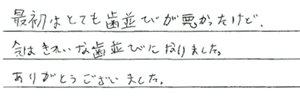 最初はとても歯並びが悪かったけど、
今はきれいな歯並びになりました。
ありがとうございました。